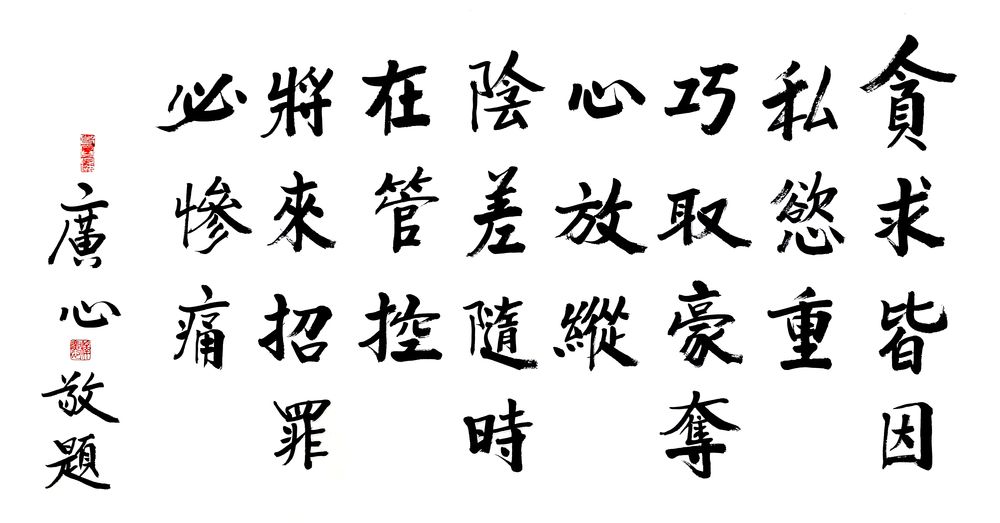 貪求皆因
私慾重
巧取豪奪
心放縱
陰差隨時
在管控
將來招罪
必慘痛
廣心敬題